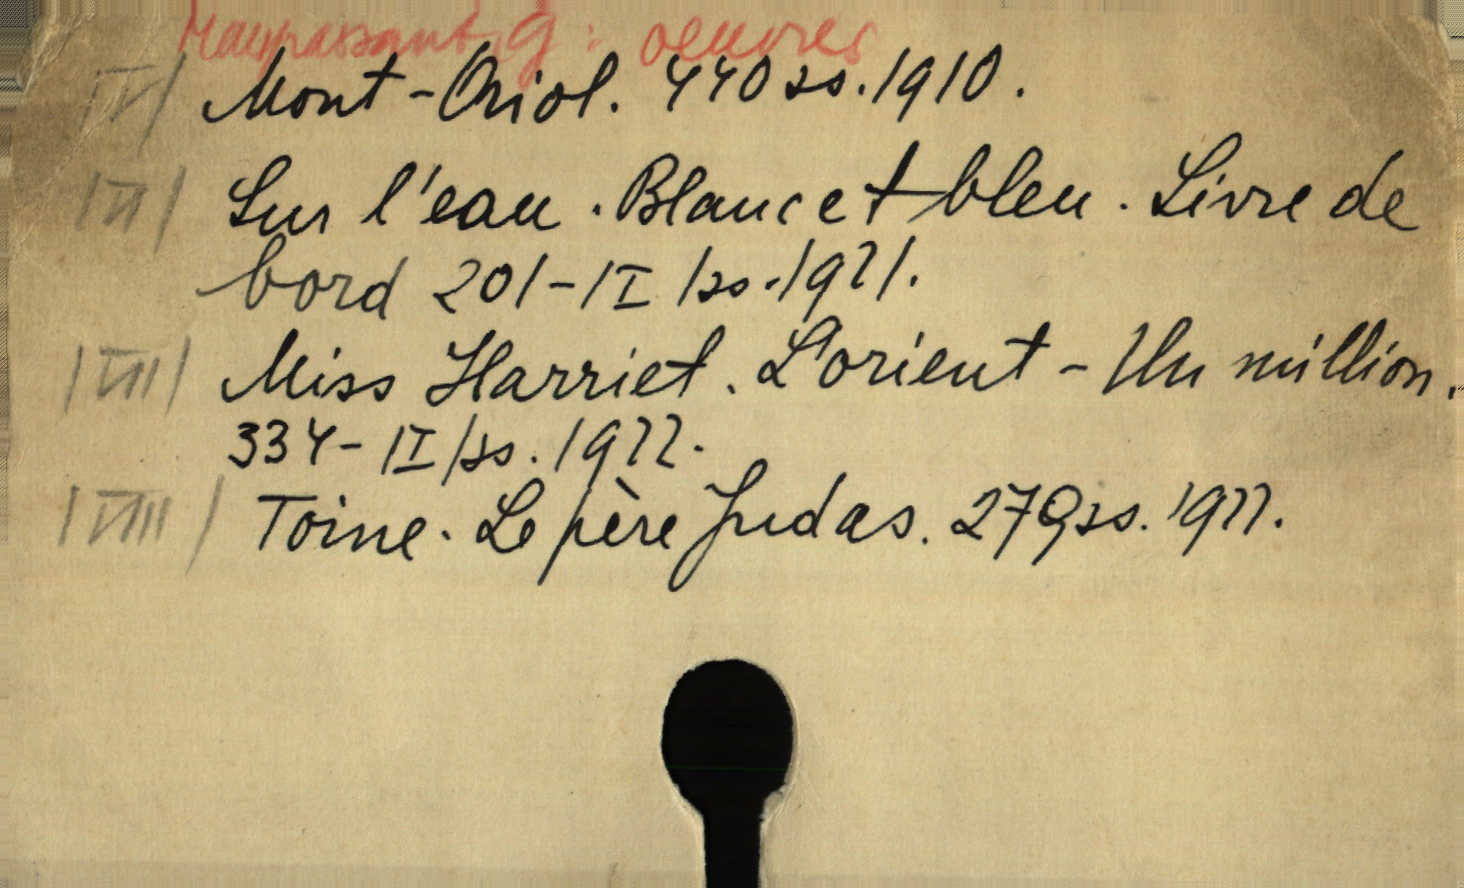 Maupassant, g: oeuvres
|V| Mont-Oriol. 440 ss. 1910.
|VI| Sur l'eau. Blanc et bleu. Livre de
bord 201-|I |ss. 1921.
|VII| Miss Harriet. L'orient - Un million.
334-|I |ss. 1922.
|VIII| Toine. Le père Judas. 279 ss. 1922.